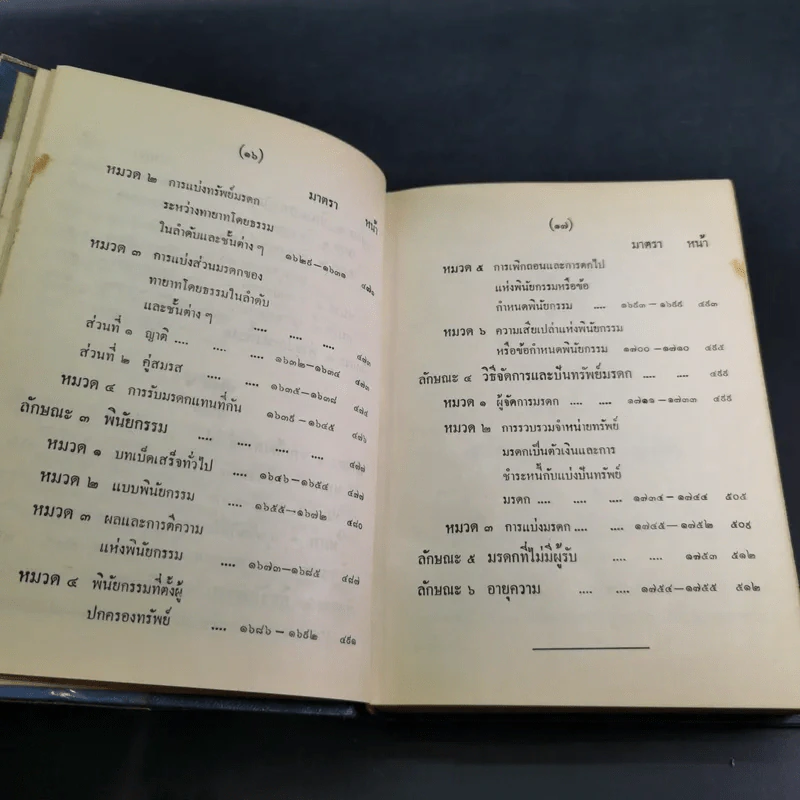 (๑๖)
มาตรา หน้า
หมวด ๒ การแบ่งทรัพย์มรดก
ระหว่างทายาทโดยธรรม
ในลำดับและชั้นต่าง ๆ ๑๖๒๙—๑๖๓๑
หมวด ๓ การแบ่งส่วนมรดกของ
ทายาทโดยธรรมในลำดับ
และชั้นต่าง ๆ .... .... ....
ส่วนที่ ๑ ญาติ .... .... .... ๑๖๓๒—๑๖๓๔
ส่วนที่ ๒ คู่สมรส .... .... ๑๖๓๕—๑๖๓๘
หมวด ๔ การรับมรดกแทนที่กัน ๑๖๓๙—๑๖๔๕ ๔๗๖
ลักษณะ ๓ พินัยกรรม .... .... .... .... ๔๗๗
หมวด ๑ บทเบ็ดเสร็จทั่วไป .... ๑๖๔๖—๑๖๕๔ ๔๗๗
หมวด ๒ แบบพินัยกรรม .... ๑๖๕๕—๑๖๗๒ ๔๘๐
หมวด ๓ ผลและการตีความ
แห่งพินัยกรรม .... ๑๖๗๓—๑๖๘๕ ๔๘๗
หมวด ๔ พินัยกรรมที่ตั้งผู้
ปกครองทรัพย์ .... ๑๖๘๖—๑๖๙๒ ๔๙๑
(๑๗)
มาตรา หน้า
หมวด ๕ การเพิกถอนและการตกไป
แห่งพินัยกรรมหรือข้อ
กำหนดพินัยกรรม .... ๑๖๙๓—๑๖๙๙ ๔๙๓
หมวด ๖ ความเสียเปล่าแห่งพินัยกรรม
หรือข้อกำหนดพินัยกรรม ๑๗๐๐—๑๗๑๐ ๔๙๕
ลักษณะ ๔ วิธีจัดการและปันทรัพย์มรดก .... .... ๔๙๙
หมวด ๑ ผู้จัดการมรดก .... .... ๑๗๑๑—๑๗๓๓ ๔๙๙
หมวด ๒ การรวบรวมจำหน่ายทรัพย์
มรดกเป็นตัวเงินและการ
ชำระหนี้กับแบ่งปันทรัพย์
มรดก .... .... .... ๑๗๓๔—๑๗๔๔ ๕๐๕
หมวด ๓ การแบ่งมรดก .... .... ๑๗๔๕—๑๗๕๒ ๕๐๙
ลักษณะ ๕ มรดกที่ไม่มีผู้รับ .... .... ๑๗๕๓ ๕๑๒
ลักษณะ ๖ อายุความ .... .... ๑๗๕๔—๑๗๕๕ ๕๑๒